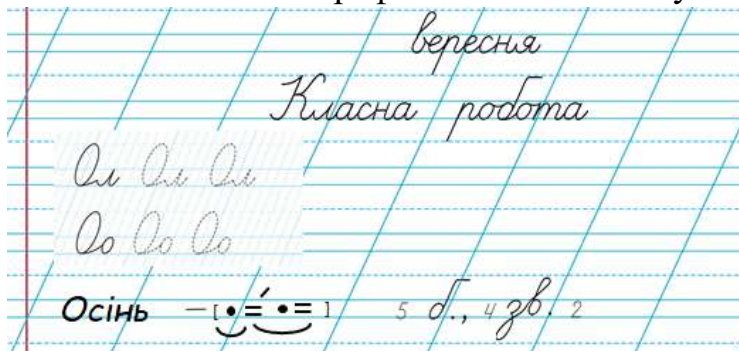 вересня
Класна робота
Ол Ол Ол
Оо Оо Оо
Осінь – [•=́ •=] 5 б., 4 зв. 2